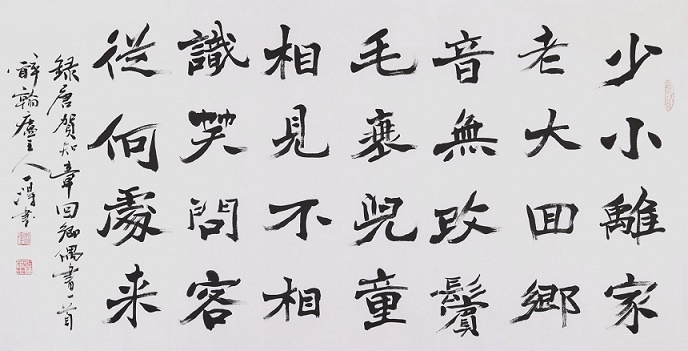 少小離家
老大回鄉
音無改鬢
毛衰兒童
相見不相
識笑問客
從何處来
錄唐賀知章回鄉偶書一首
醉翰廬主人得書